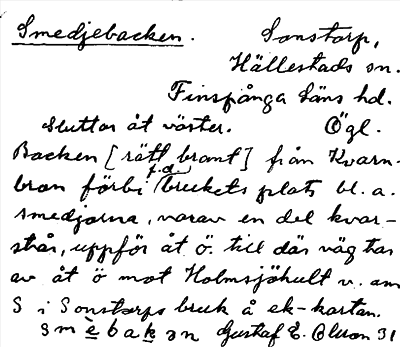 Smedjebacken. Sonstorp,
Hällestads sn.
Finspånga läns hd.
Sluttar åt väster. Ögl.
Backen [rätt brant] från Kvarn-
bron förbi f.d. brukets plats bl. a.
smedjorna, varav en del kvar-
står, uppför åt ö. till där väg tar
av åt ö mot Holmsjöhult v. om
S i Sonstorps bruk å ek-kartan.
smèbakən Gustaf E. Olson 31